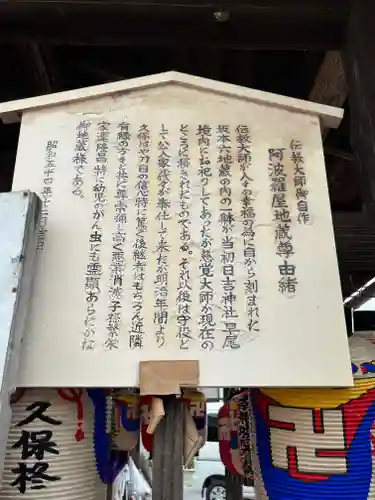 伝教大師御自作
阿波羅屋地蔵尊由緒
伝教大師が人々の幸福の為に自から刻まれた
坂本六地蔵の内の一躰が当初日吉神社早尾
境内にお祀りしてあったが慈覚大師が現在の
ところに移されたものである。それ以後は守役と
して公人家代々が奉仕して来たが明治年間より
久保はや刀自の信心特に篤く後継者はもちろん近隣
有縁の方々と共に尊崇弥し高く悪業消滅子孫繁栄
家運隆昌特に幼児のかん虫にも霊顕あらたかな
御地蔵様である。
昭和五十四年
久保柊